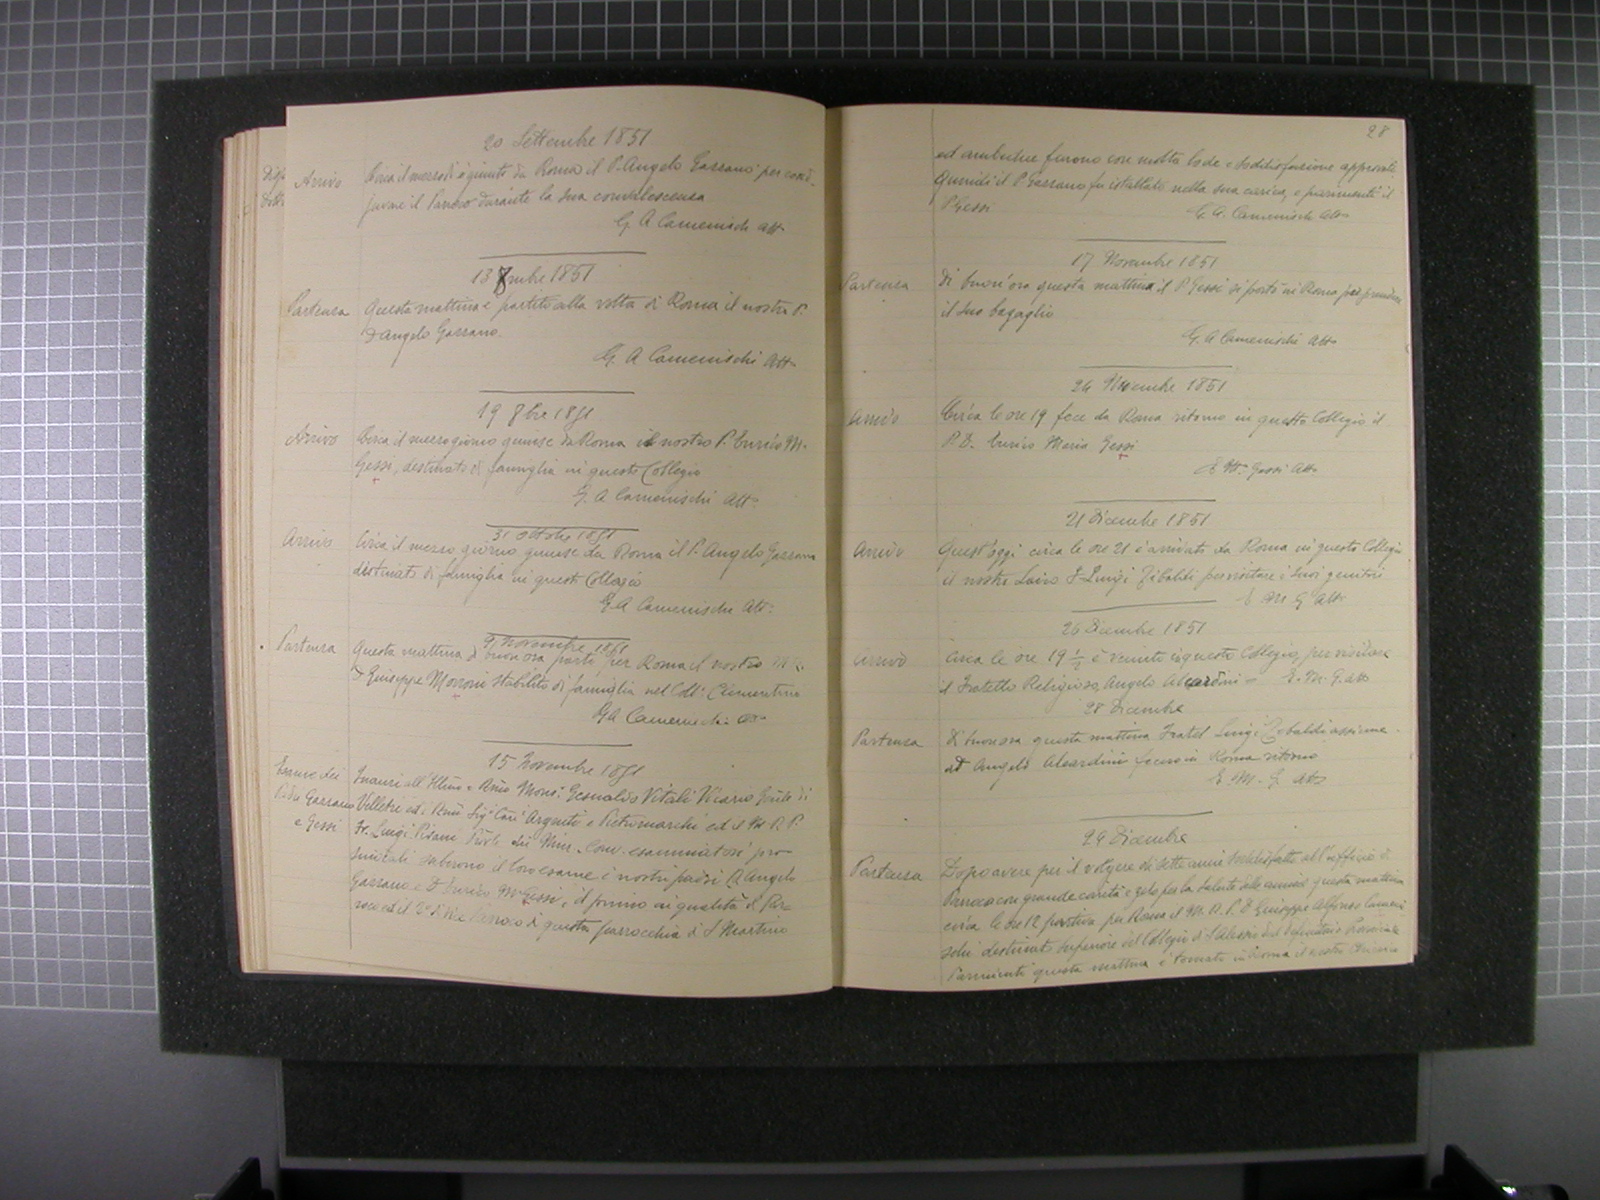 20 Settembre 1851
Arrivo
Circa il mezzodì è giunto da Roma il P. Angelo Gassano per coad-
juvare il Parroco durante la sua convalescenza
G A Camenisch att°
13 8mbre 1851
Partenza
Questa mattina è partito alla volta di Roma il nostro P.
D Angelo Gassano.
G. A Camenischi Att°
19 8bre 1851
Arrivo
Circa il mezzo giorno giunse da Roma il nostro P. Enrico M.
Gessi, destinato di famiglia in questo Collegio
G. A Camenischi Att°
31 ottobre 1851
Arrivo
Circa il mezzo giorno giunse da Roma il P. Angelo Gassano
destinato di famiglia in questo Collegio
G A Camenischi Att°
9 Novembre 1851
Partenza
Questa mattina di buon ora partì per Roma il nostro
D Giuseppe Monroni stabilito di famiglia nel Coll° Clementino
G A Camenischi att°
15 Novembre 1851
Esame dei
Padri Gassano
e Gessi
Inanzi all'Illmo e Rmo Mons. Gesualdo Vitali Vicario Gnle di
Velletri ed i Rmi Sig.i Can.i Argenti e Pietromarchi ed il M. R. P.
Fr. Luigi Pisani dei Min. Conv. esaminatori pro-
sinodali subirono il loro esame i nostri padri D Angelo
Gassano e D Enrico M Gessi, il primo in qualità di Par-
roco ed il 2° di Vice Parroco di questa parrocchia di S Martino
28
ed ambedue furono con molta lode e soddisfazione approvati
Quindi il P Gassano fu istallato nella sua carica, e parimenti il
P Gessi
G. A. Camenischi Att°
17 Novembre 1851
Partenza
Di buon'ora questa mattina il P Gessi si portò in Roma per prendere
il suo bagaglio
G. A Camenischi Att°
24 Novembre 1851
Arrivo
Circa le ore 19 fece da Roma ritorno in questo Collegio il
P. D. Enrico Maria Gessi
E M. Gessi Att°
21 Dicembre 1851
Arrivo
Quest'oggi circa le ore 21 è arrivato da Roma in questo Collegio
il nostro Laico F Luigi Zibaldi per visitare i suoi genitori
E M G Att°
26 Dicembre 1851
Arrivo
Circa le ore 19 ½ è venuto in questo Collegio, per visitare
il Fratello Religioso, Angelo Alcardini - E. M. G. att°
28 Dicembre
Partenza
Di buon ora questa mattina Fratel Luigi Zibaldi assieme
ad Angelo Alcardini fecero in Roma ritorno
E. M. G. Att°
29 Dicembre
Partenza
Dopo avere per il volgere di sette anni soddisfatto all'ufficio di
Parroco con grande carità e zelo per la salute delle anime questa mattina
circa le ore 12 partiva per Roma il M. R. P. D Giuseppe Alfonso Cameni
schi destinato Superiore del Collegio di S Alessio dal Definitorio Provinciale
Parimenti questa mattina è tornato in Roma il nostro